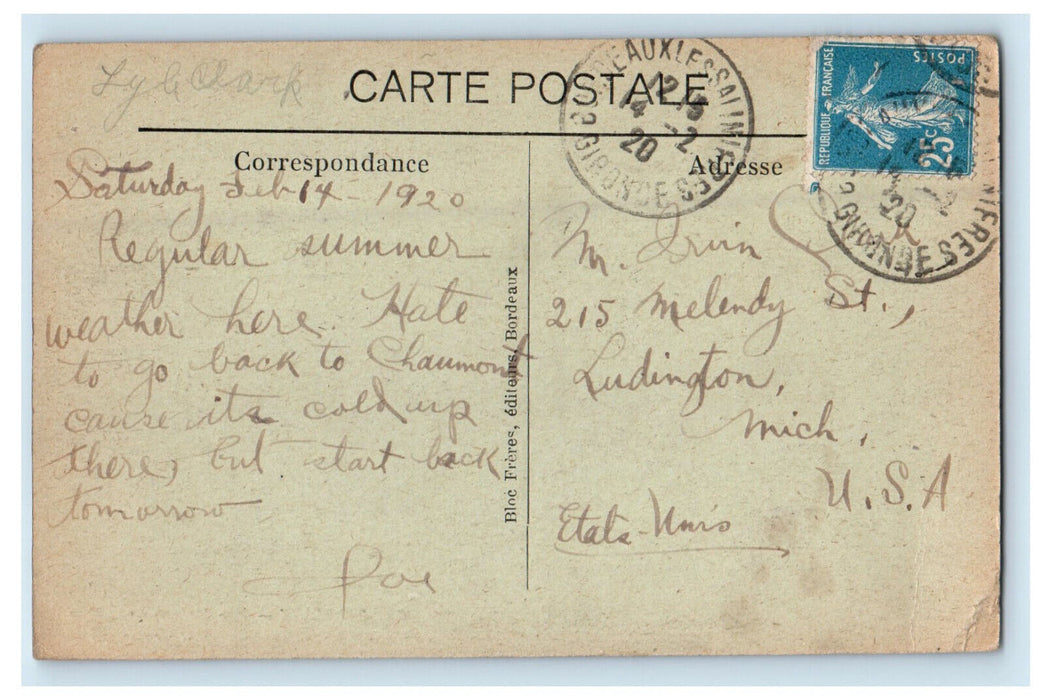 CARTE POSTALE
Correspondance
Saturday Feb 14 - 1920
Regular summer
weather here. Hate
to go back to Chaumont
cause its cold up
there, but start back
tomorrow
Bloc Frères, éditeurs, Bordeaux
Adresse
M. Irvin
215 Melendy St.,
Ludington,
Mich.
U.S.A
Etats-Unis
REPUBLIQUE FRANÇAISE
POSTES
25c
12 15
14 -2
20
GIRONDE
14 -2
20
GIRONDE